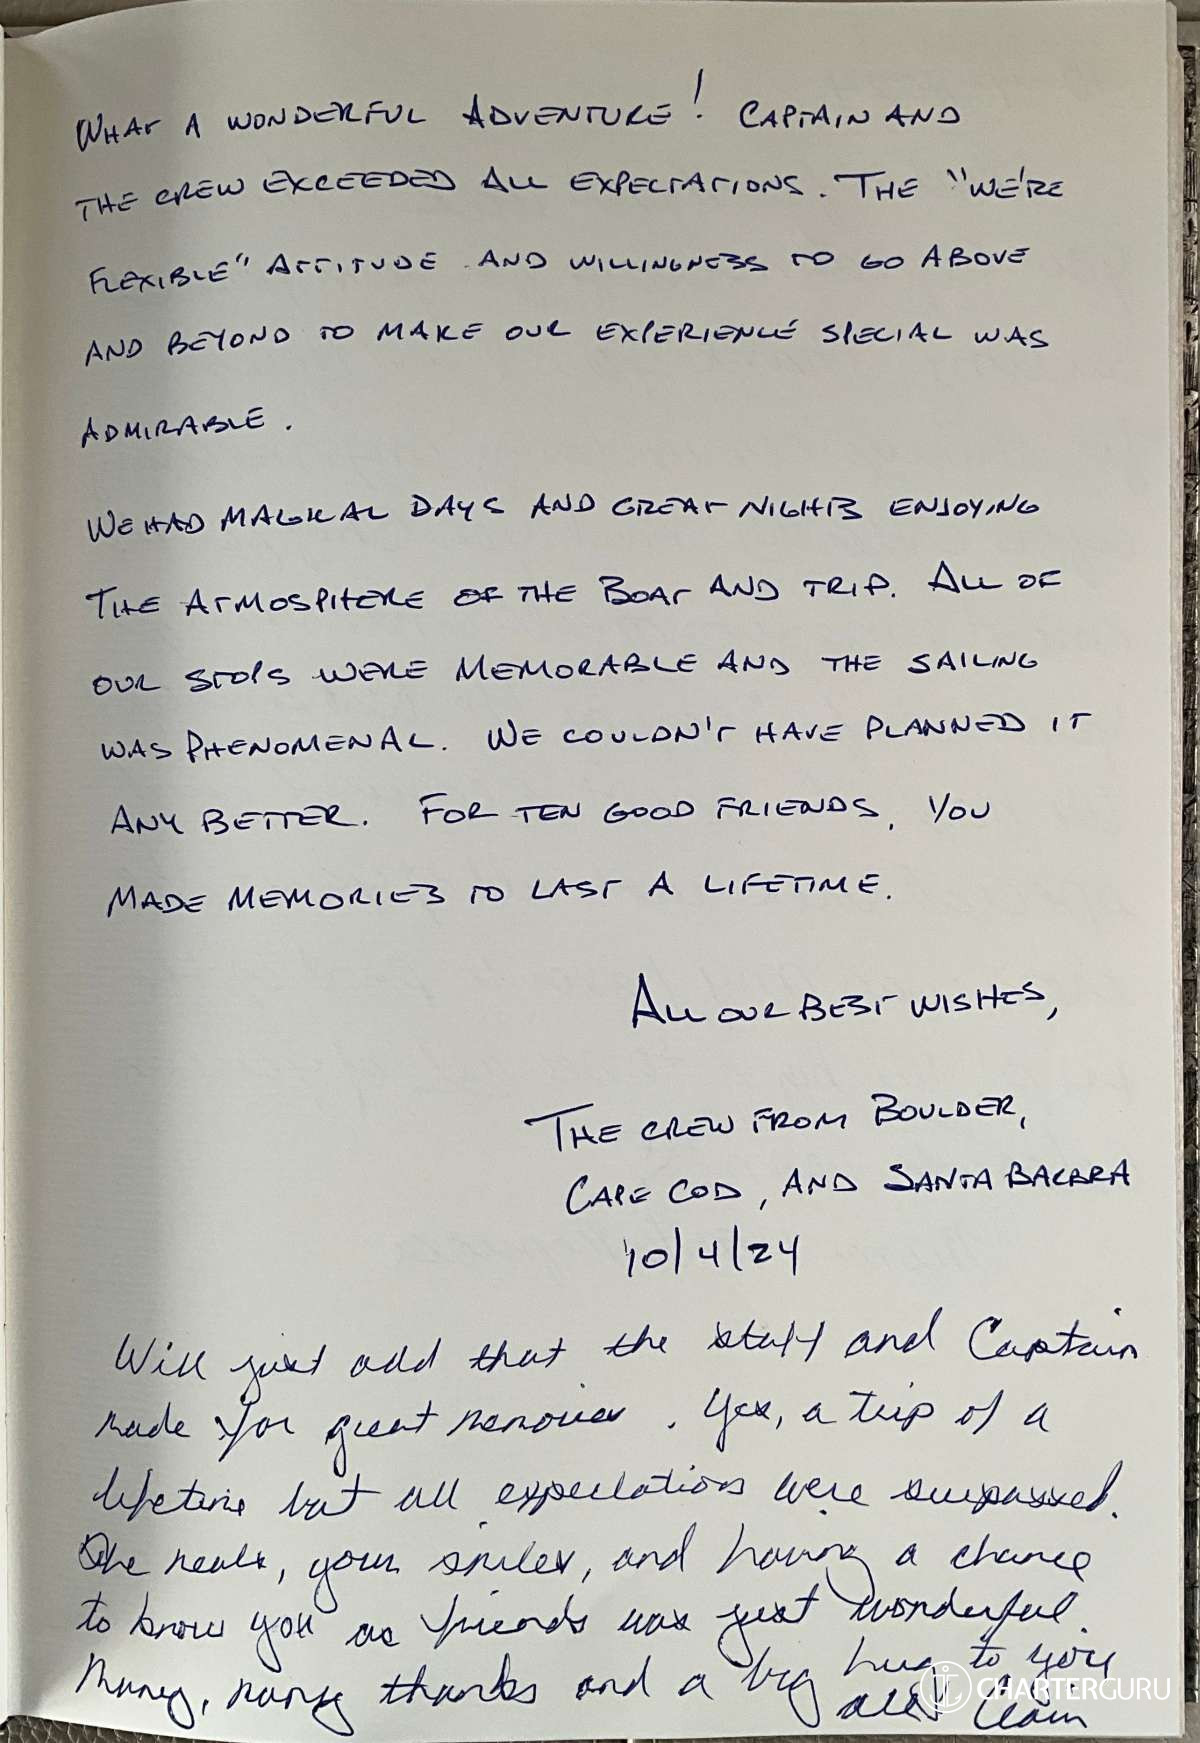 WHAT A WONDERFUL ADVENTURE! CAPTAIN AND
THE CREW EXCEEDED ALL EXPECTATIONS. THE "WE'RE
FLEXIBLE" ATTITUDE AND WILLINGNESS TO GO ABOVE
AND BEYOND TO MAKE OUR EXPERIENCE SPECIAL WAS
ADMIRABLE.
WE HAD MAGICAL DAYS AND GREAT NIGHTS ENJOYING
THE ATMOSPHERE OF THE BOAT AND TRIP. ALL OF
OUR STOPS WERE MEMORABLE AND THE SAILING
WAS PHENOMENAL. WE COULDN'T HAVE PLANNED IT
ANY BETTER. FOR TEN GOOD FRIENDS, YOU
MADE MEMORIES TO LAST A LIFETIME.
ALL OUR BEST WISHES,
THE CREW FROM BOULDER,
CAPE COD, AND SANTA BARBRA
10/4/24
Will just add that the staff and Captain
made for great memories. Yes, a trip of a
lifetime but all expectations were surpassed.
The meals, your smiles, and having a chance
to know you as friends was just wonderful.
Many, many thanks and a big hug to you
team
CHARTERGURU